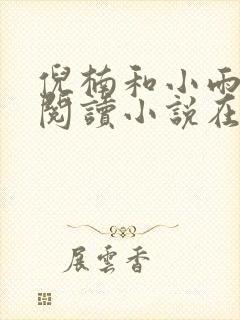 倪楠和小雨
閱讀小説在
展雲香